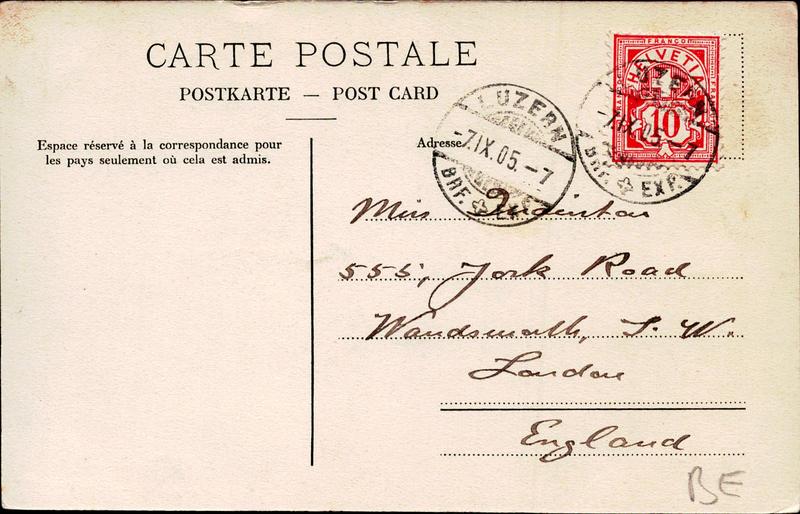 CARTE POSTALE
POSTKARTE — POST CARD
Espace réservé à la correspondance pour
les pays seulement où cela est admis.
Adresse
FRANCO
HELVETIA
10
LUZERN
-7.IX.05.-7
BRF. EXP.
LUZERN
-7.IX.05.-7
BRF. EXP.
Miss
555, York Road
Wandsworth, S. W.
London
England
BE